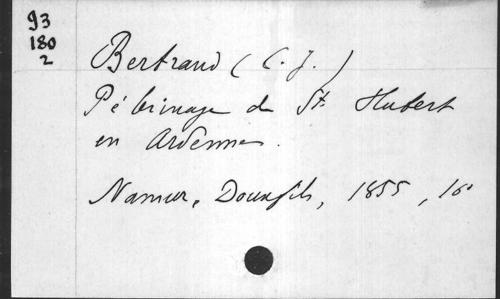 93
180
2
Bertrand (C. J.)
Pélerinage de St. Hubert
en Ardennes.
Namur, Douxfils, 1855, 16°